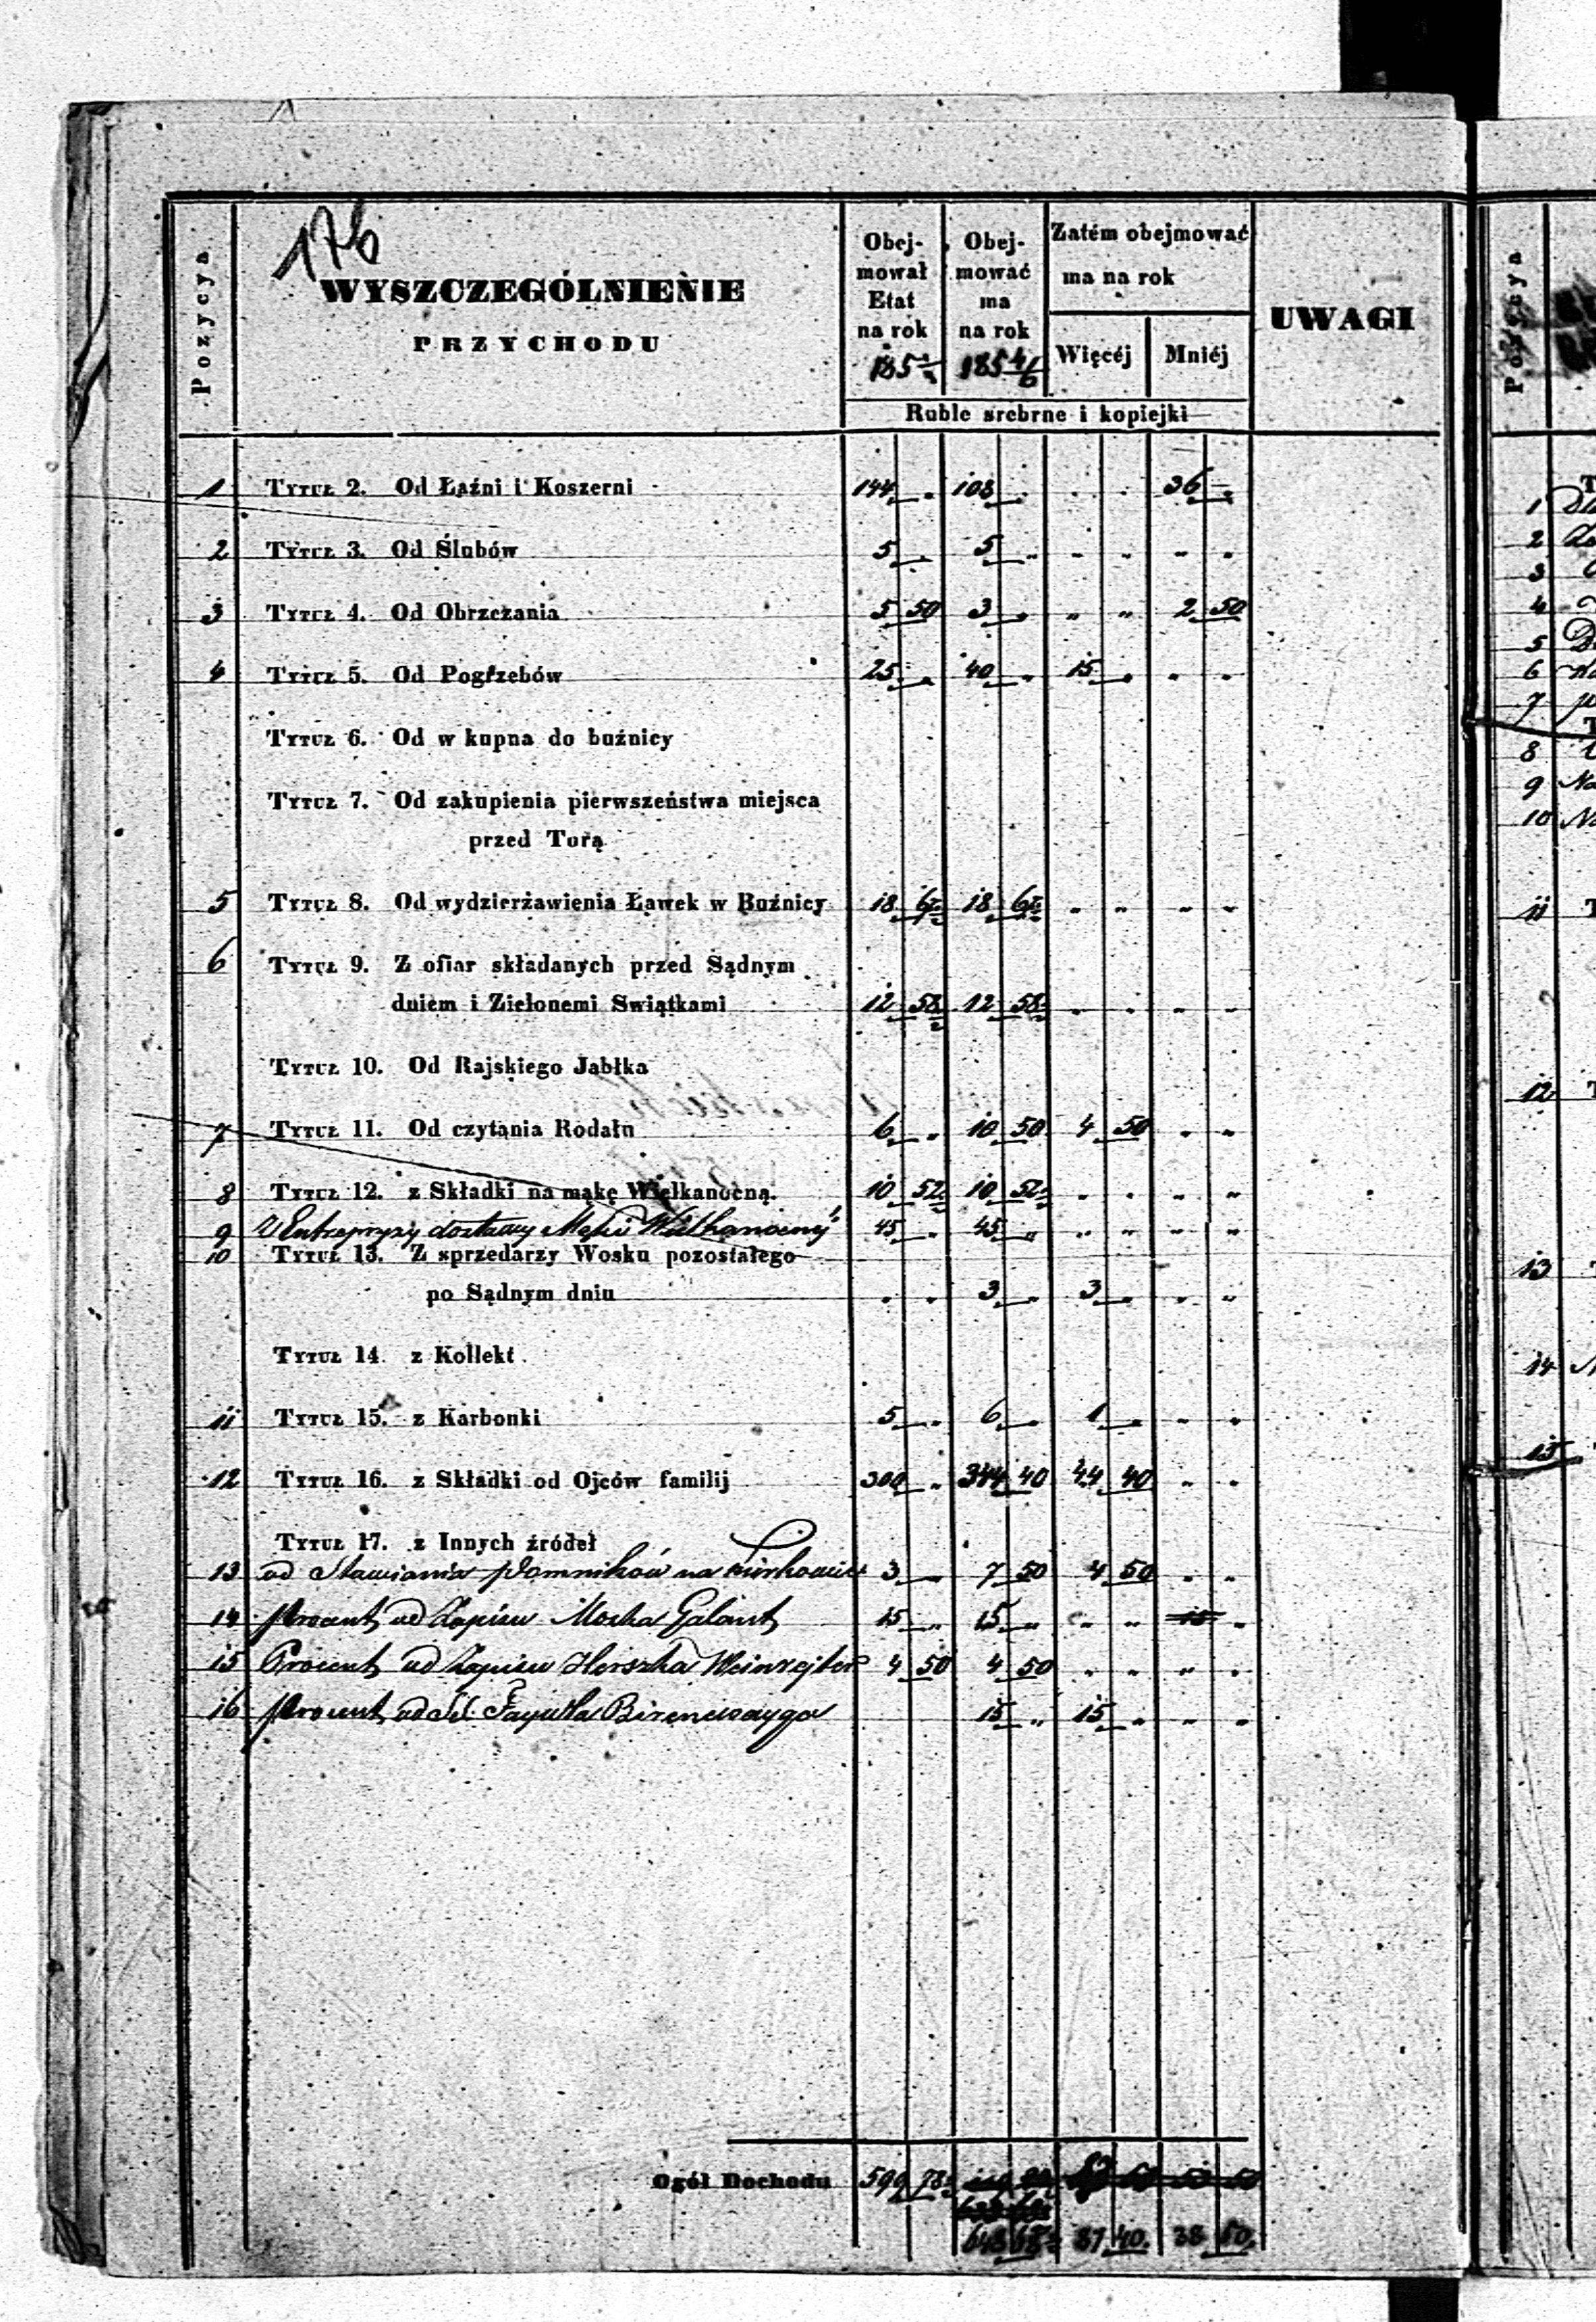 176
Pozycya
WYSZCZEGÓLNIENIE
PRZYCHODU
Obej-
mował
Etat
na rok
185
Obej-
mować
ma
na rok
185 4/6
Zatém obejmować
ma na rok
Więcéj
Mniéj
Ruble srebrne i kopiejki
UWAGI
1 Tytuł 2. Od Łaźni i Koszerni 144 „ 108 „ „ „ 36 „
2 Tytuł 3. Od Ślubów 5 „ 5 „ „ „ „ „
3 Tytuł 4. Od Obrzezania 5 50 3 „ „ „ 2 50
4 Tytuł 5. Od Pogrzebów 25 „ 40 „ 15 „ „ „
Tytuł 6. Od w kupna do buźnicy
Tytuł 7. Od zakupienia pierwszeństwa miejsca
przed Torą
5 Tytuł 8. Od wydzierżawienia Ławek w Buźnicy 18 18 „ „ „ „
6 Tytuł 9. Z ofiar składanych przed Sądnym
dniem i Zielonemi Swiątkami 12 58 12 58 „ „ „ „
Tytuł 10. Od Rajskiego Jabłka
7 Tytuł 11. Od czytania Rodału 6 „ 10 50 4 50 „ „
8 Tytuł 12. z Składki na mąkę Wielkanocną. 10 52 10 52 „ „ „ „
9 Z Entrepryzy dostawy Mąki Wielkanocnej 45 „ 45 „ „ „ „ „
10 Tytuł 13. Z sprzedarzy Wosku pozostałego
po Sądnym dniu „ „ 3 „ 3 „ „ „
Tytuł 14. z Kollekt
11 Tytuł 15. z Karbonki 5 „ 6 „ 1 „ „ „
12 Tytuł 16. z Składki od Ojców familij 300 „ 344 40 44 40 „ „
Tytuł 17. z Innych źródeł
13 od Stawiania Pomników na Kirkowie 3 „ 7 50 4 50 „ „
14 Procent od Zapisu Moska Galant 15 „ 15 „ „ „ 15 „
15 Procent od Zapisu Herszka 4 50 4 50 „ „ „ „
16 Procent od 15 „ 15 „ „ „
Ogół Dochodu 599 78
648 68 87 40 38 50
Pozycya
1
2
3
4
5
6
7
8
9
10
11
12
13
14
15